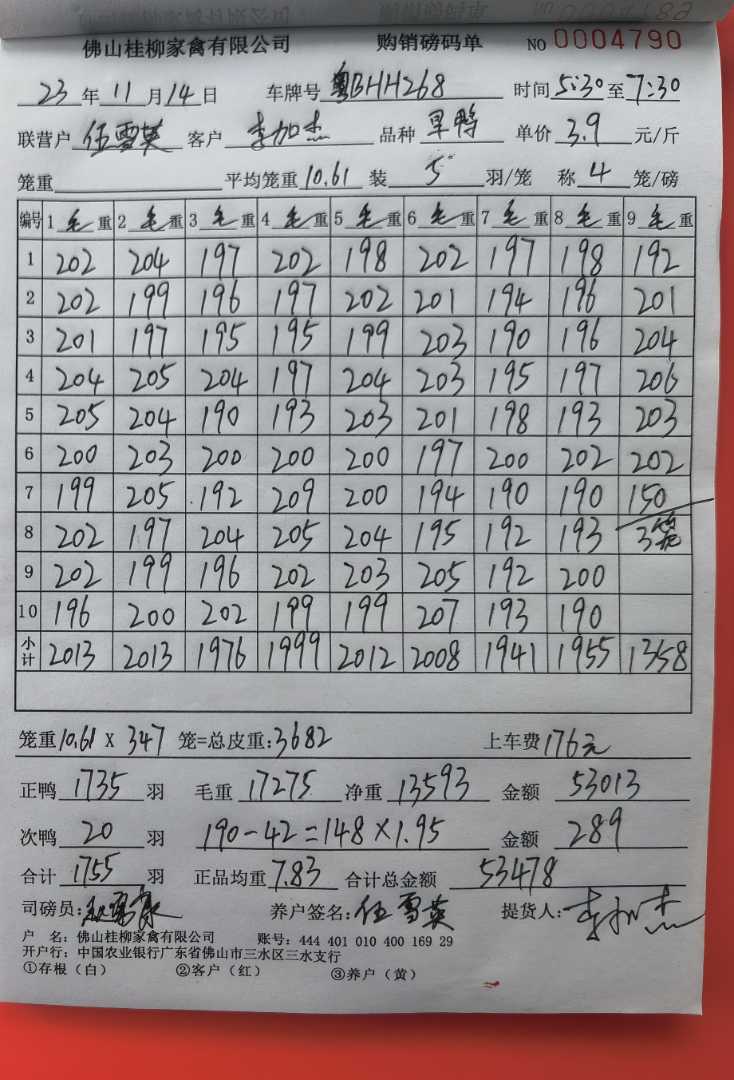 佛山桂柳家禽有限公司 购销磅码单 NO 0004790
23年11月14日 车牌号 粤BHH268 时间 5:30至7:30
联营户 伍雪英 客户 李加杰 品种 旱鸭 单价 3.9 元/斤
笼重 平均笼重 10.61 装 5 羽/笼 称 4 笼/磅
编号 1 毛 重 2 毛 重 3 毛 重 4 毛 重 5 毛 重 6 毛 重 7 毛 重 8 毛 重 9 毛 重
1 202 204 197 202 198 202 197 198 192
2 202 199 196 197 202 201 194 196 201
3 201 197 195 195 199 203 190 196 204
4 204 205 204 197 204 203 195 197 206
5 205 204 190 193 203 201 198 193 203
6 200 203 200 200 200 197 200 202 202
7 199 205 192 209 200 194 190 190 150
8 202 197 204 205 204 195 192 193 3笼
9 202 199 196 202 203 205 192 200
10 196 200 202 199 199 207 193 190
小计 2013 2013 1976 1999 2012 2008 1941 1955 1358
笼重 10.61 X 347 笼=总皮重:3682 上车费 176元
正鸭 1735 羽 毛重 17275 净重 13593 金额 53013
次鸭 20 羽 190-42=148×1.95 金额 289
合计 1755 羽 正品均重 7.83 合计总金额 53478
司磅员: 养户签名:伍雪英 提货人:李加杰
户 名: 佛山桂柳家禽有限公司 账号: 444 401 010 400 169 29
开户行: 中国农业银行广东省佛山市三水区三水支行
①存根（白） ②客户（红） ③养户（黄）